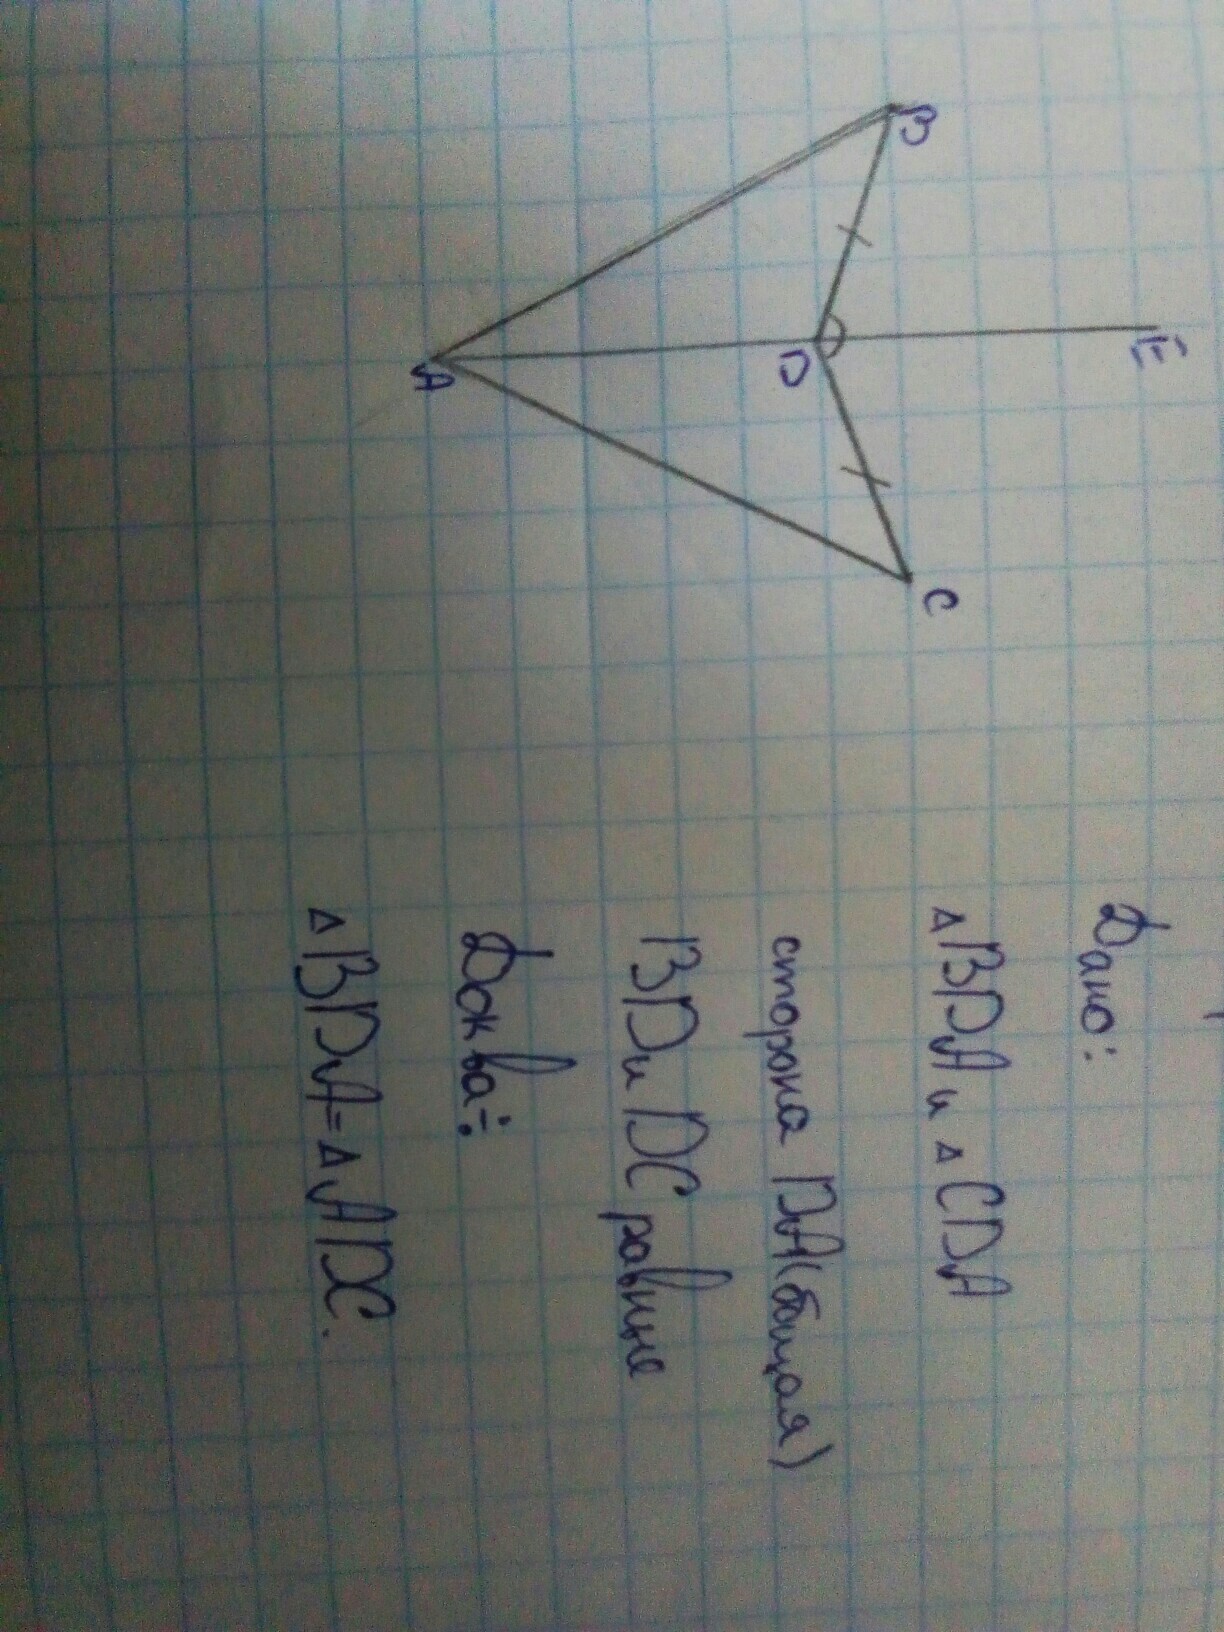 B
E
D
C
A
Дано:
▵BDA и ▵CDA
сторона DA(бщая)
BD и DC равные
Док ва-:
▵BDA=▵ADC.